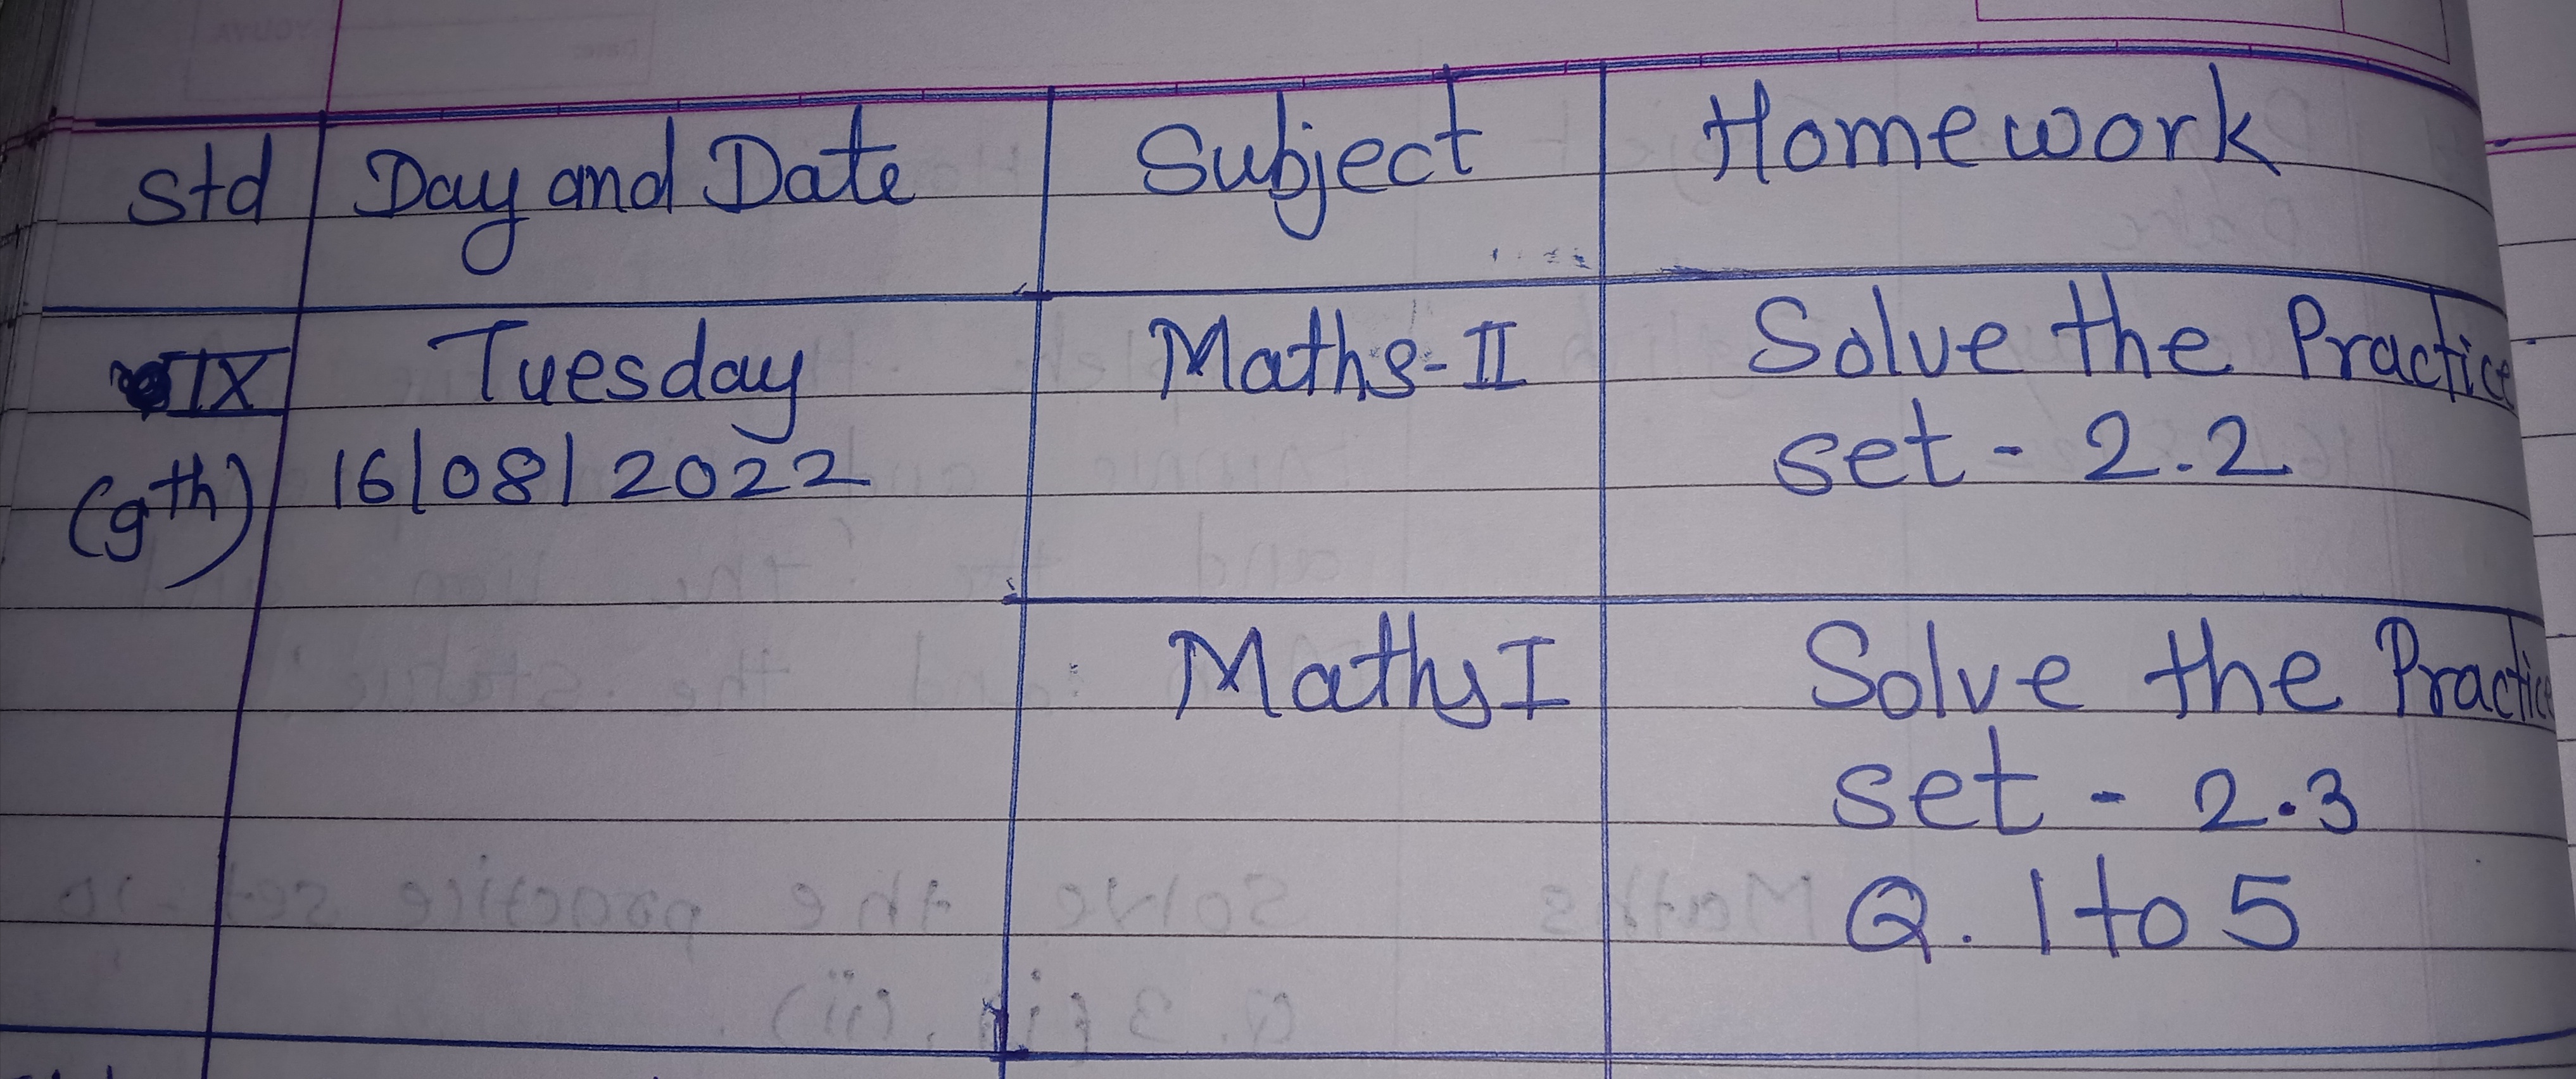 Std Day and Date Subject Homework
IX Tuesday Maths-II Solve the Practice
(9th) 16/08/2022 set - 2.2
Maths I Solve the Practice
set - 2.3
Q. 1 to 5